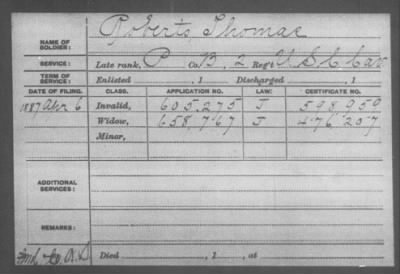 NAME OF SOLDIER: Roberts, Thomas
SERVICE: Late rank, P Co. B, 2 Reg't U.S.C. Cav
TERM OF SERVICE: Enlisted , 1 Discharged , 1
DATE OF FILING. CLASS. APPLICATION NO. LAW: CERTIFICATE NO.
1887 Apr 6 Invalid, 605,275 J 598,959
Widow, 658,767 J 476,207
Minor,
ADDITIONAL SERVICES:
REMARKS:
Died , 1 , at